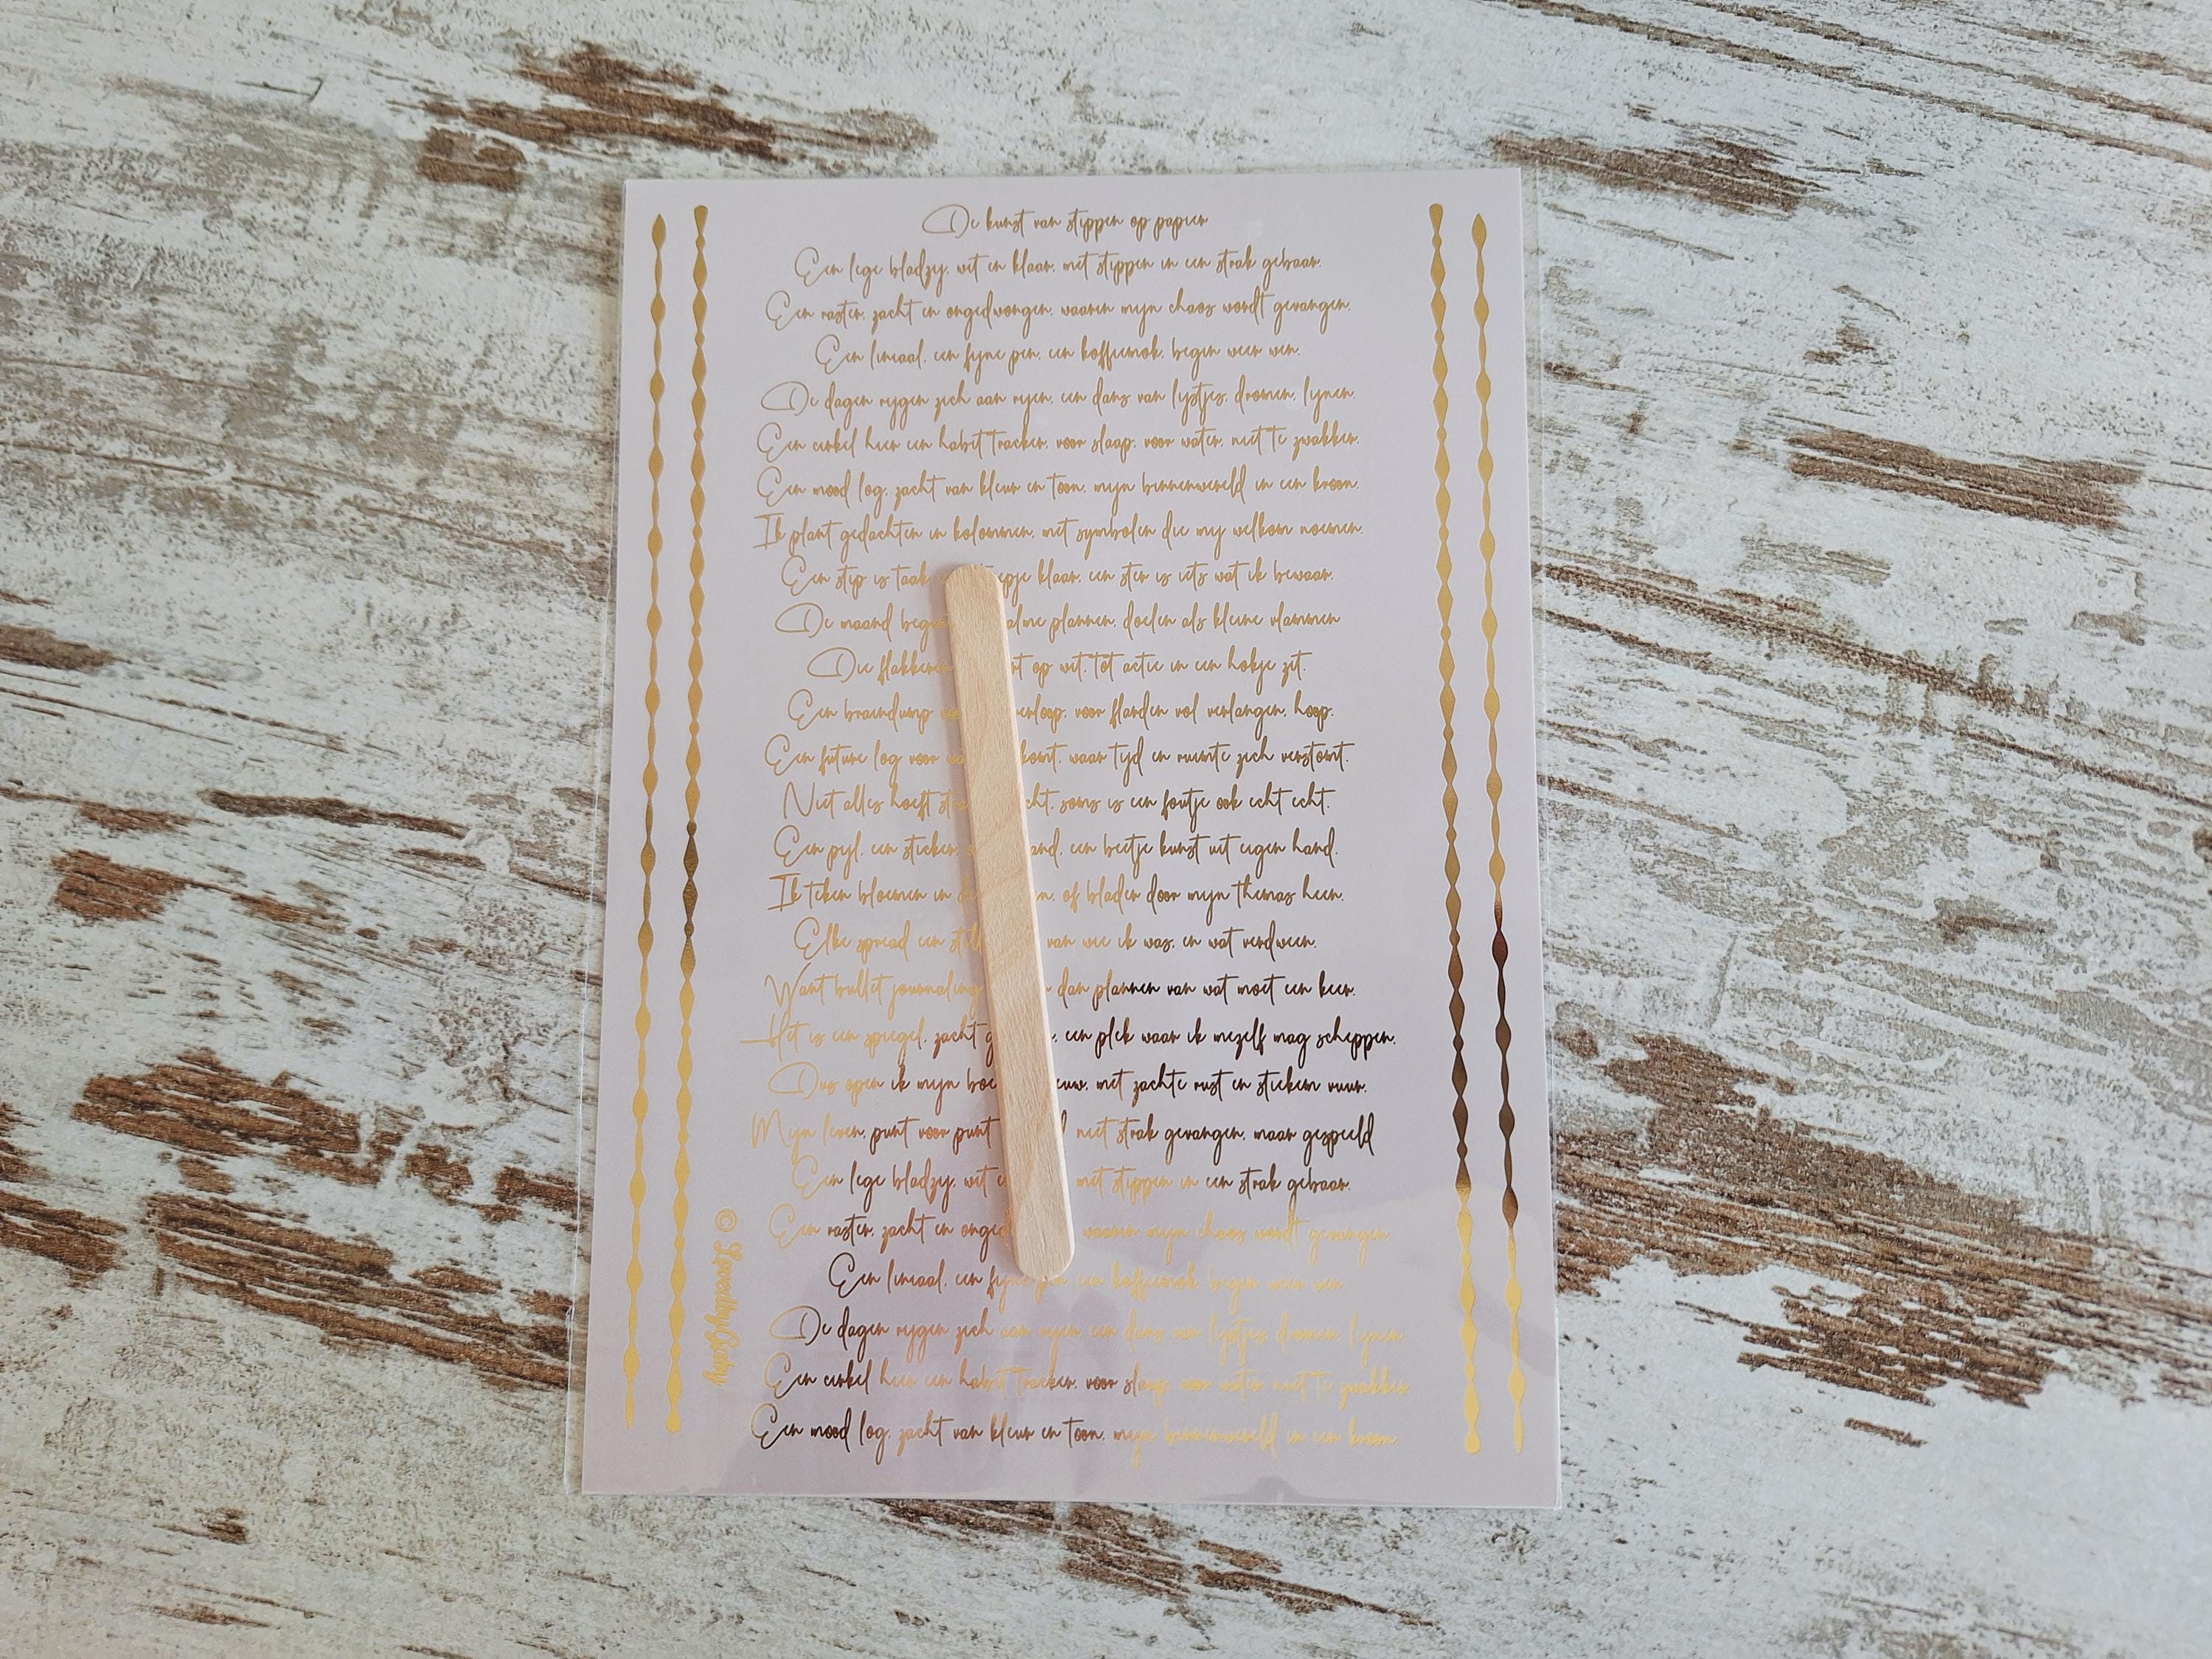 De kunst van stippen op papier
Een lege bladzij, wit en klaar, met stippen in een strak gebaar.
Een raster, zacht en ongedwongen, waarin mijn chaos wordt gevangen.
Een liniaal, een fijne pen, een koffiemok, begin weer een.
De dagen rijgen zich aan rijen, een dans van lijstjes, dromen, lijnen.
Een cirkel hier een habit tracker, voor slaap, voor water, niet te zwakker.
Een mood log, zacht van kleur en toon, mijn binnenwereld in een kroon.
Ik plant gedachten in kolommen, met symbolen die mij welkom noemen.
Een stip is taak epje klaar, een ster is iets wat ik bewaar.
De maand begin alme plannen, doelen als kleine vlammen
Die flakkeren nt op wit, tot actie in een hokje zit.
Een braindump verloop, voor flarden vol verlangen, hoop.
Een future log voor komt, waar tijd en ruimte zich verstomt.
Niet alles hoeft cht, soms is een foutje ook echt echt.
Een pijl, een sticker, and, een beetje kunst uit eigen hand.
Ik teken bloemen in de n, of blader door mijn themas heen.
Elke spread een stil van wie ik was, en wat verdween.
Want bullet journaling dan plannen van wat moet een keer.
Het is een spiegel, zacht g , een plek waar ik mezelf mag scheppen.
Dus open ik mijn boe euw, met zachte rust en stiekem vuur.
Mijn leven, punt voor punt d niet strak gevangen, maar gespeeld
Een lege bladzij, wit e met stippen in een strak gebaar.
Een raster, zacht en onged waarin mijn chaos wordt gevangen
Een liniaal, een fijne pen, een koffiemok begin weer een
De dagen rijgen zich aan rijen, een dans van lijstjes dromen lijnen
Een cirkel hier een habit tracker, voor slaap, voor water niet te zwakker
Een mood log, zacht van kleur en toon, mijn binnenwereld in een kroon